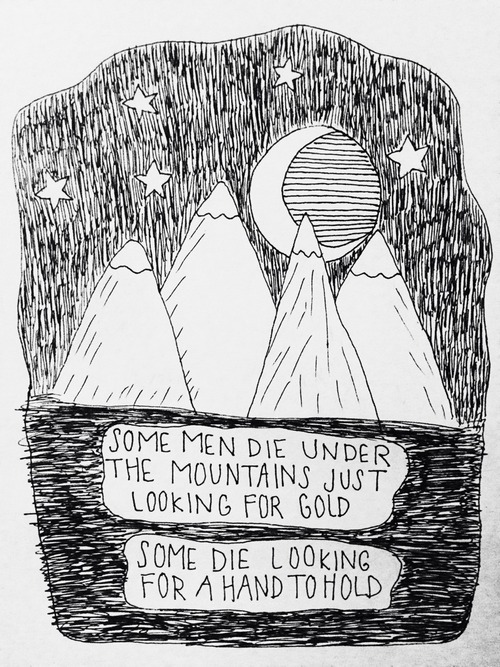 SOME MEN DIE UNDER
THE MOUNTAINS JUST
LOOKING FOR GOLD
SOME DIE LOOKING
FOR A HAND TO HOLD